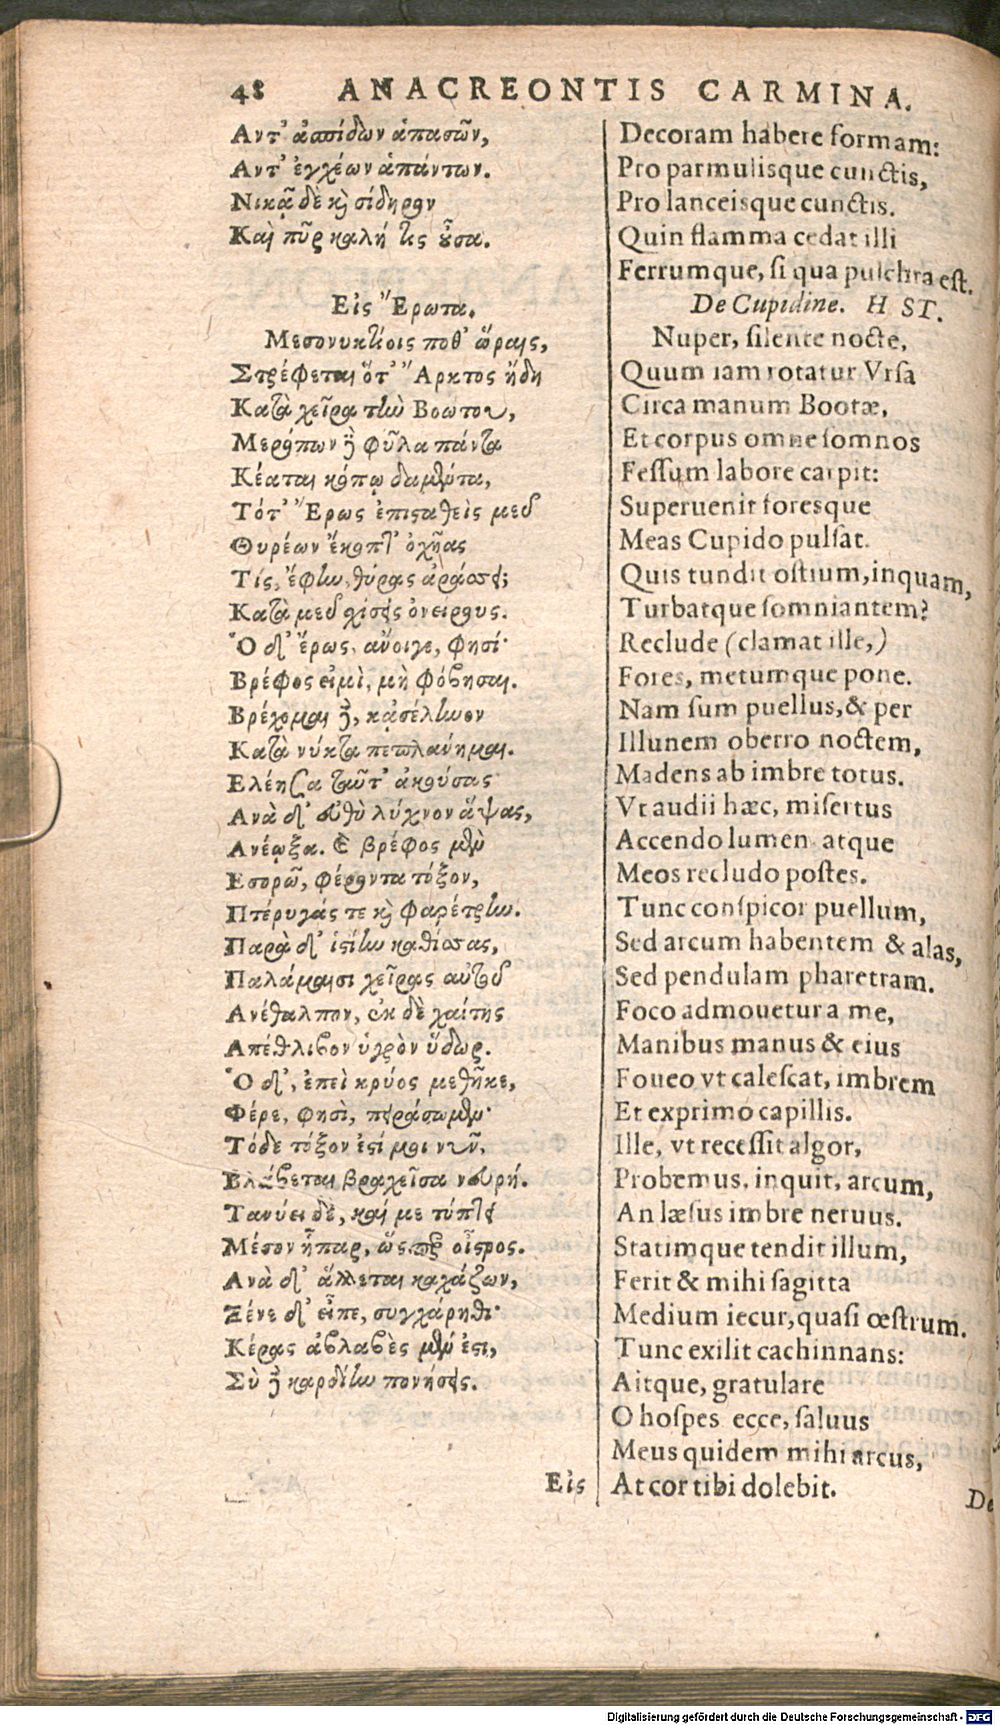 48 ANACREONTIS CARMINA.
Αντ' ἀσπίδων ἁπασῶν,
Αντ' ἐγχέων ἁπάντων.
Νικᾷ δὲ καὶ σίδηρον
Καὶ πῦρ καλή τις οὖσα.
Εἰς Ἔρωτα.
Μεσονυκτίοις ποθ' ὥραις,
Στρέφεται ὅτ' Ἄρκτος ἤδη
Κατὰ χεῖρα τὴν Βοώτου,
Μερόπων δὲ φῦλα πάντα
Κέαται κόπῳ δαμέντα,
Τότ' Ἔρως ἐπισταθεὶς μευ
Θυρέων ἔκοπτ' ὀχῆας
Τίς, ἔφην, θύρας ἀράσσει;
Κατὰ μευ χίσεις ὀνείρους.
Ὁ δ' ἔρως, ἄνοιγε, φησί·
Βρέφος εἰμὶ, μὴ φόβησαι.
Βρέχομαι δὲ, κἀσέληνον
Κατὰ νύκτα πεπλάνημαι.
Ελέησα ταῦτ' ἀκούσας·
Ανὰ δ' εὐθὺ λύχνον ἅψας,
Ανέῳξα. καὶ βρέφος μὲν
Εσορῶ, φέροντα τόξον,
Πτέρυγάς τε καὶ φαρέτρην.
Παρὰ δ' ἱστίην καθίσας,
Παλάμαισι χεῖρας αὐτοῦ
Ανέθαλπον, ἐκ δὲ χαίτης
Απέθλιβον ὑγρὸν ὕδωρ.
Ὁ δ', ἐπεὶ κρύος μεθῆκε,
Φέρε, φησὶ, πειράσωμεν·
Τόδε τόξον ἐστί μοι νῦν,
Βλάβεται βραχεῖσα νευρή.
Τανύει δὲ, καί με τύπτει
Μέσον ἧπαρ, ὥσπερ οἶστρος.
Ανὰ δ' ἅλλεται καχάζων,
Ξένε δ' εἶπε, συγχάρηθι·
Κέρας ἀβλαβὲς μέν ἐστι,
Σὺ δὲ καρδίην πονήσεις.
Εἰς
Decoram habere formam:
Pro parmulisque cunctis,
Pro lanceisque cunctis.
Quin flamma cedat illi
Ferrumque, si qua pulchra est.
De Cupidine. H ST.
Nuper, silente nocte,
Quum iam rotatur Vrsa
Circa manum Bootæ,
Et corpus omne somnos
Fessum labore carpit:
Superuenit foresque
Meas Cupido pulsat.
Quis tundit ostium, inquam,
Turbatque somniantem?
Reclude (clamat ille,)
Fores, metumque pone.
Nam sum puellus, & per
Illunem oberro noctem,
Madens ab imbre totus.
Vt audii hæc, misertus
Accendo lumen atque
Meos recludo postes.
Tunc conspicor puellum,
Sed arcum habentem & alas,
Sed pendulam pharetram.
Foco admouetur a me,
Manibus manus & eius
Foueo vt calescat, imbrem
Et exprimo capillis.
Ille, vt recessit algor,
Probemus, inquit, arcum,
An læsus imbre neruus.
Statimque tendit illum,
Ferit & mihi sagitta
Medium iecur, quasi œstrum.
Tunc exilit cachinnans:
Aitque, gratulare
O hospes ecce, saluus
Meus quidem mihi arcus,
At cor tibi dolebit.
De
Digitalisierung gefördert durch die Deutsche Forschungsgemeinschaft - DFG